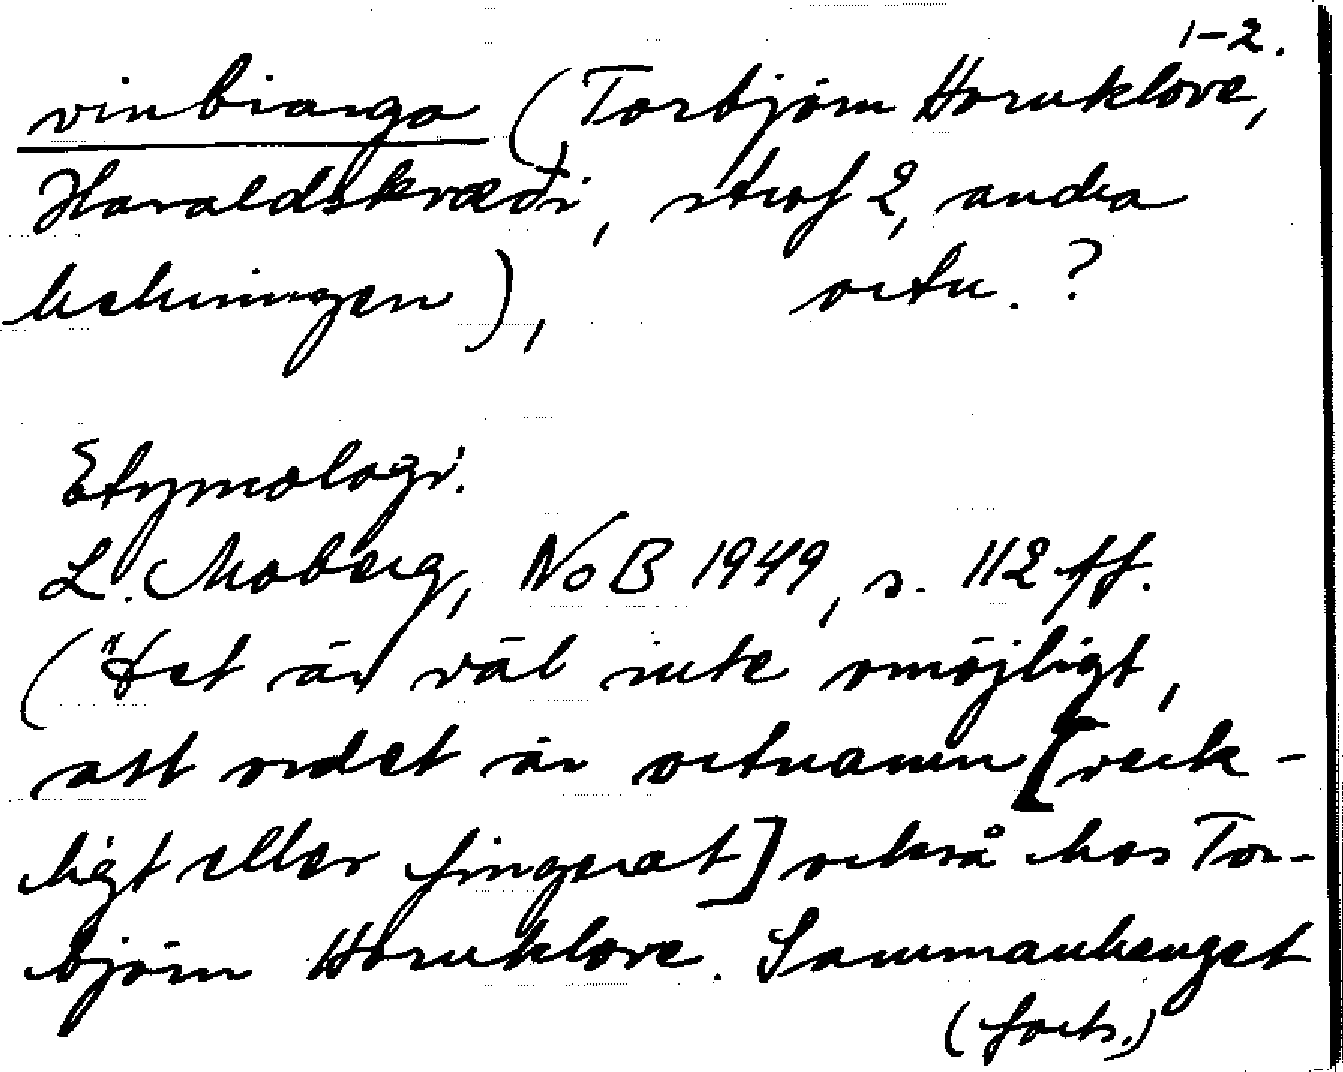 1-2.
vinbiarga (Torbjörn Hornklove,
Haraldskvæði, strof 2, andra
helmingen), ortn.?
Etymologi:
L. Moberg, NoB 1949, s. 112 ff.
("Det är väl inte omöjligt,
att ordet är ortnamn [verk-
ligt eller fingerat] också hos Tor-
björn Hornklove. Sammanhanget
(forts.)